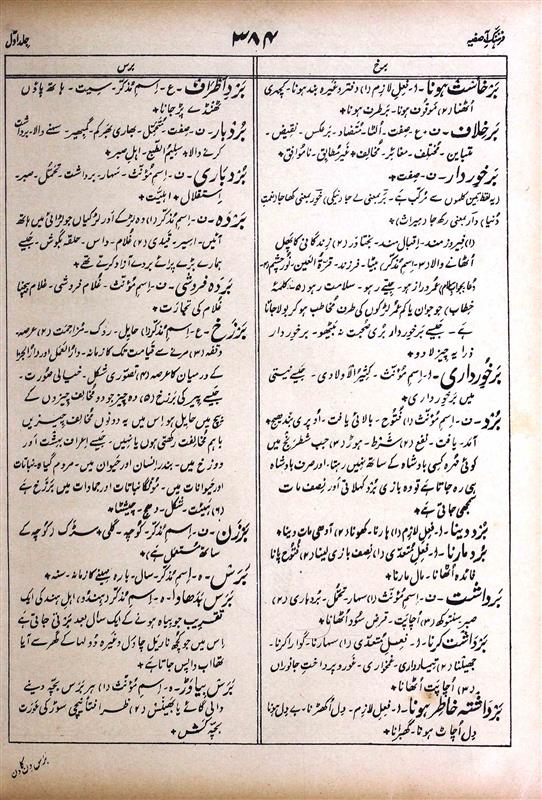 فرہنگِ آصفیہ
۳۸۴
جلد اوّل
برخ
برس
بَرْخاسْت ہونا۔ ا۔ فعلِ لازم (۱) دفتر وغیرہ بند ہونا۔ کچہری
اُٹھنا (۲) موقوف ہونا۔ برطرف ہونا ٭
بَرْخِلاف۔ ف۔ ع۔ صِفت۔ اُلٹا۔ مُتضاد۔ برعکس۔ نقیض۔
متباین۔ مُختلف۔ مغائر۔ مُخالف۔ غیر مطابق۔ ناموافق ٭
بَرخوردار۔ ف۔ صِفت ٭
(۱) فیروز مند۔ اِقبال مند۔ بختاور (۲) زِندگانی کا پھل
اُٹھانے والا (۳) اِسمِ مُذکّر) بیٹا۔ فرزند۔ قرّۃ العین۔ نُورِ چشم (۴)
دُعا بجائے سلام) عُمر دراز ہو۔ جیتے رہو۔ سلامت رہو (۵) کلمۂ
خِطاب) جو جوان یا کم عُمر لڑکوں کی طرف مُخاطب ہو کر بولا جاتا
ہے۔ جیسے برخوردار بُری صُحبت نہ بیٹھو۔ برخوردار
ذرا یہ چیز لا دو ٭
بَرخورداری۔ ا۔ اِسمِ مؤنّث۔ کثیر الاولادی۔ جیسے نیستی
میں برخورداری ٭
بُرد۔ ف۔ اِسمِ مؤنّث (۱) فتُوح۔ بالائی یافت۔ اُوپری
آمد۔ یافت۔ نفع (۲) شرط۔ ہوڑ (۳) جب شطرنج میں
کوئی مُہرہ کسی بادشاہ کے ساتھ نہیں رہتا۔ اور صرف بادشاہ
ہی رہ جاتا ہے تو وہ بازی بُرد کہلاتی اور نِصف مات
سمجھی جاتی ہے ٭
بُرد دینا۔ ا۔ فعلِ لازم (۱) ہارنا۔ کھونا (۲) آدھی مات دینا ٭
بُرد مارنا۔ ا۔ فعلِ مُتعدّی (۱) نِصف بازی لینا (۲) فتُوح پانا
فائدہ اُٹھانا۔ مال مارنا ٭
بَرداشت۔ ف۔ اِسمِ مؤنّث (۱) سہار۔ تحمّل۔ بُردباری (۲)
صبر سنتوکھ (۳) اُچاپت۔ قرض سَودا اُٹھانا ٭
بَرداشت کرنا۔ ا۔ فعلِ مُتعدّی (۱) سہارنا۔ گوارا کرنا۔
جھیلنا (۲) تیمارداری۔ غمخواری۔ غور و پرداخت جانوراں
(۳) اُچاپت اُٹھانا ٭
بَرداشتہ خاطِر ہونا۔ ا۔ فعلِ لازم۔ دِل اُکھڑنا۔ بے دِل ہونا
دِل اُچاٹ ہونا۔ گھبرانا ٭
بَردِ اَطراف۔ ع۔ اِسمِ مُذکّر۔ سیت۔ ہاتھ پاؤں
ٹھنڈے پڑ جانا ٭
بُردبار۔ ف۔ صِفت۔ مُتحمّل۔ بھاری بھرکم۔ گمبھیر۔ سہنے والا۔ برداشت
کرنے والا۔ سلیم الطبع۔ اہلِ صبر ٭
بُردباری۔ ف۔ اِسمِ مؤنّث۔ سہار۔ برداشت۔ تحمّل۔ صبر۔
اِستقلال۔ اہلیّت ٭
بَردہ۔ ف۔ اِسمِ مُذکّر (۱) وہ لڑکے اور لڑکیاں جو لڑائی میں ہاتھ
آئیں۔ اسیر۔ قیدی (۲) غُلام۔ داس۔ حلقہ بگوش۔ جیسے
ہمارے بڑے پرائے بردے آزاد کرتے تھے ٭
بَردہ فروشی۔ ف۔ اِسمِ مؤنّث۔ غُلام فروشی۔ غُلام بیچنا
غُلام کی تجارت ٭
بَرزَخ۔ ع۔ اِسمِ مُذکّر (۱) حایل۔ روک۔ مُزاحمت (۲) عرصہ۔
وقفہ (۳) مرنے سے قیامت تک کا زمانہ۔ دار العمل اور دار الجزا
کے درمیان کا عرصہ (۴) تصوّری شکل۔ خیالی صُورت۔
جیسے پیر کی برزخ (۵) وہ چیز جو دو مُخالف چیزوں کے
بیچ میں حایل ہو اس میں یہ دونوں مُخالف چیزیں
باہم مُخالفت رکھتی ہوں یا نہیں۔ جیسے اعراف بہشت اور
دوزخ میں۔ بندر اِنسان اور حیوان میں۔ مردُم گیاہ۔ نباتات
اور حیوانات میں۔ مُونگا نباتات اور جمادات میں برزخ ہے
(۶) ہیئت۔ شکل۔ دھج۔
بَرزَن۔ ف۔ اِسمِ مُذکّر۔ کُوچہ۔ گلی۔ سڑک (کُوچہ کے
ساتھ مُستعمل ہے) ٭
بَرَس۔ ہ۔ اِسمِ مُذکّر۔ سال۔ بارہ مہینے کا زمانہ۔ سنہ ٭
بَرَس بدھاوا۔ ہ۔ اِسمِ مُذکّر (ہندو) اہلِ ہند کی ایک
تقریب جو بیاہ ہونے کے ایک سال بعد برتی جاتی ہے
اس میں جو کُچھ ناریل چاول وغیرہ دُولہا کے گھر سے آیا
تھا اب واپس جاتا ہے ٭
بَرَس بیاوڑ۔ ہ۔ اِسمِ مؤنّث (۱) ہر برس بچّہ دینے
والی گائے یا بھینس (۲) ظرافتاً) نیچی سوڑ کی عَورت
بچّہ کش ٭
برس دن کا دن